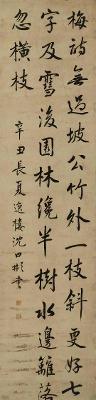 梅詩無過坡公竹外一枝斜更好七
字及雪後園林纔半樹水邊籬落
忽橫枝
辛丑長夏逸樓沈曰彬書